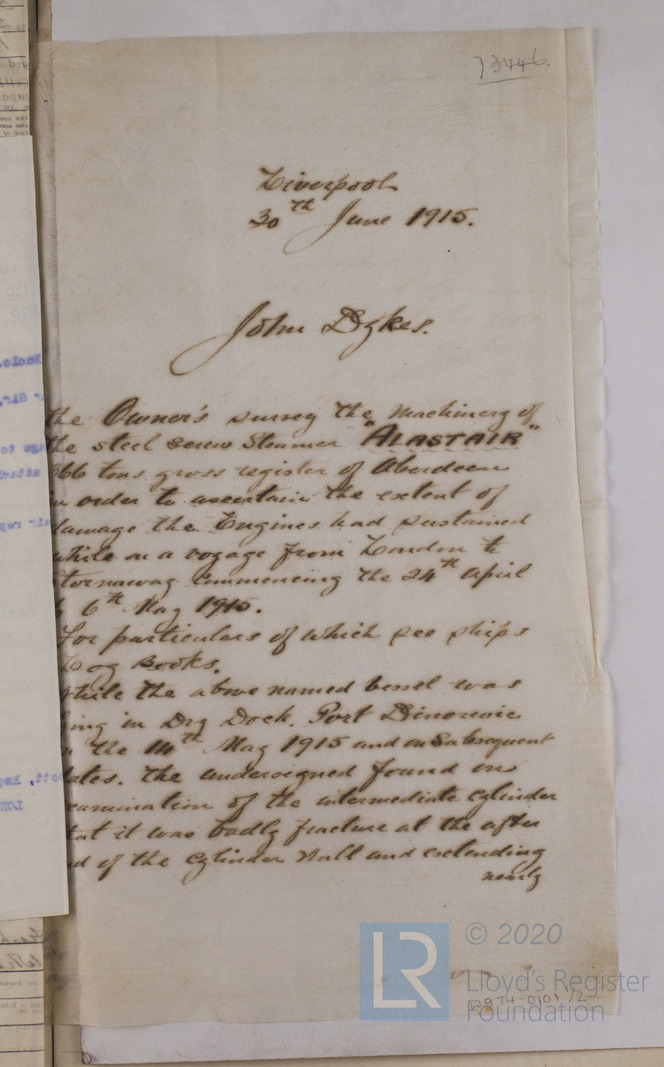 73446.
Liverpool
30th June 1915.
John Dykes.
the Owner's survey the machinery of
the steel screw Steamer "ALASTAIR"
366 tons gross register of Aberdeen
in order to ascertain the extent of
damage the Engines had sustained
while on a voyage from London to
Stornaway Commencing the 24th April
6th May 1915.
For particulars of which see ships
Log Books.
While the above named vessel was
lying in Dry Dock. Port Dinorwic
on the 14th May 1915 and on Subsequent
dates. the undersigned found on
examination of the intermediate cylinder
that it was badly fracture at the after
end of the cylinder Wall and extending
nearly
LR
© 2020
Lloyd's Register
Foundation